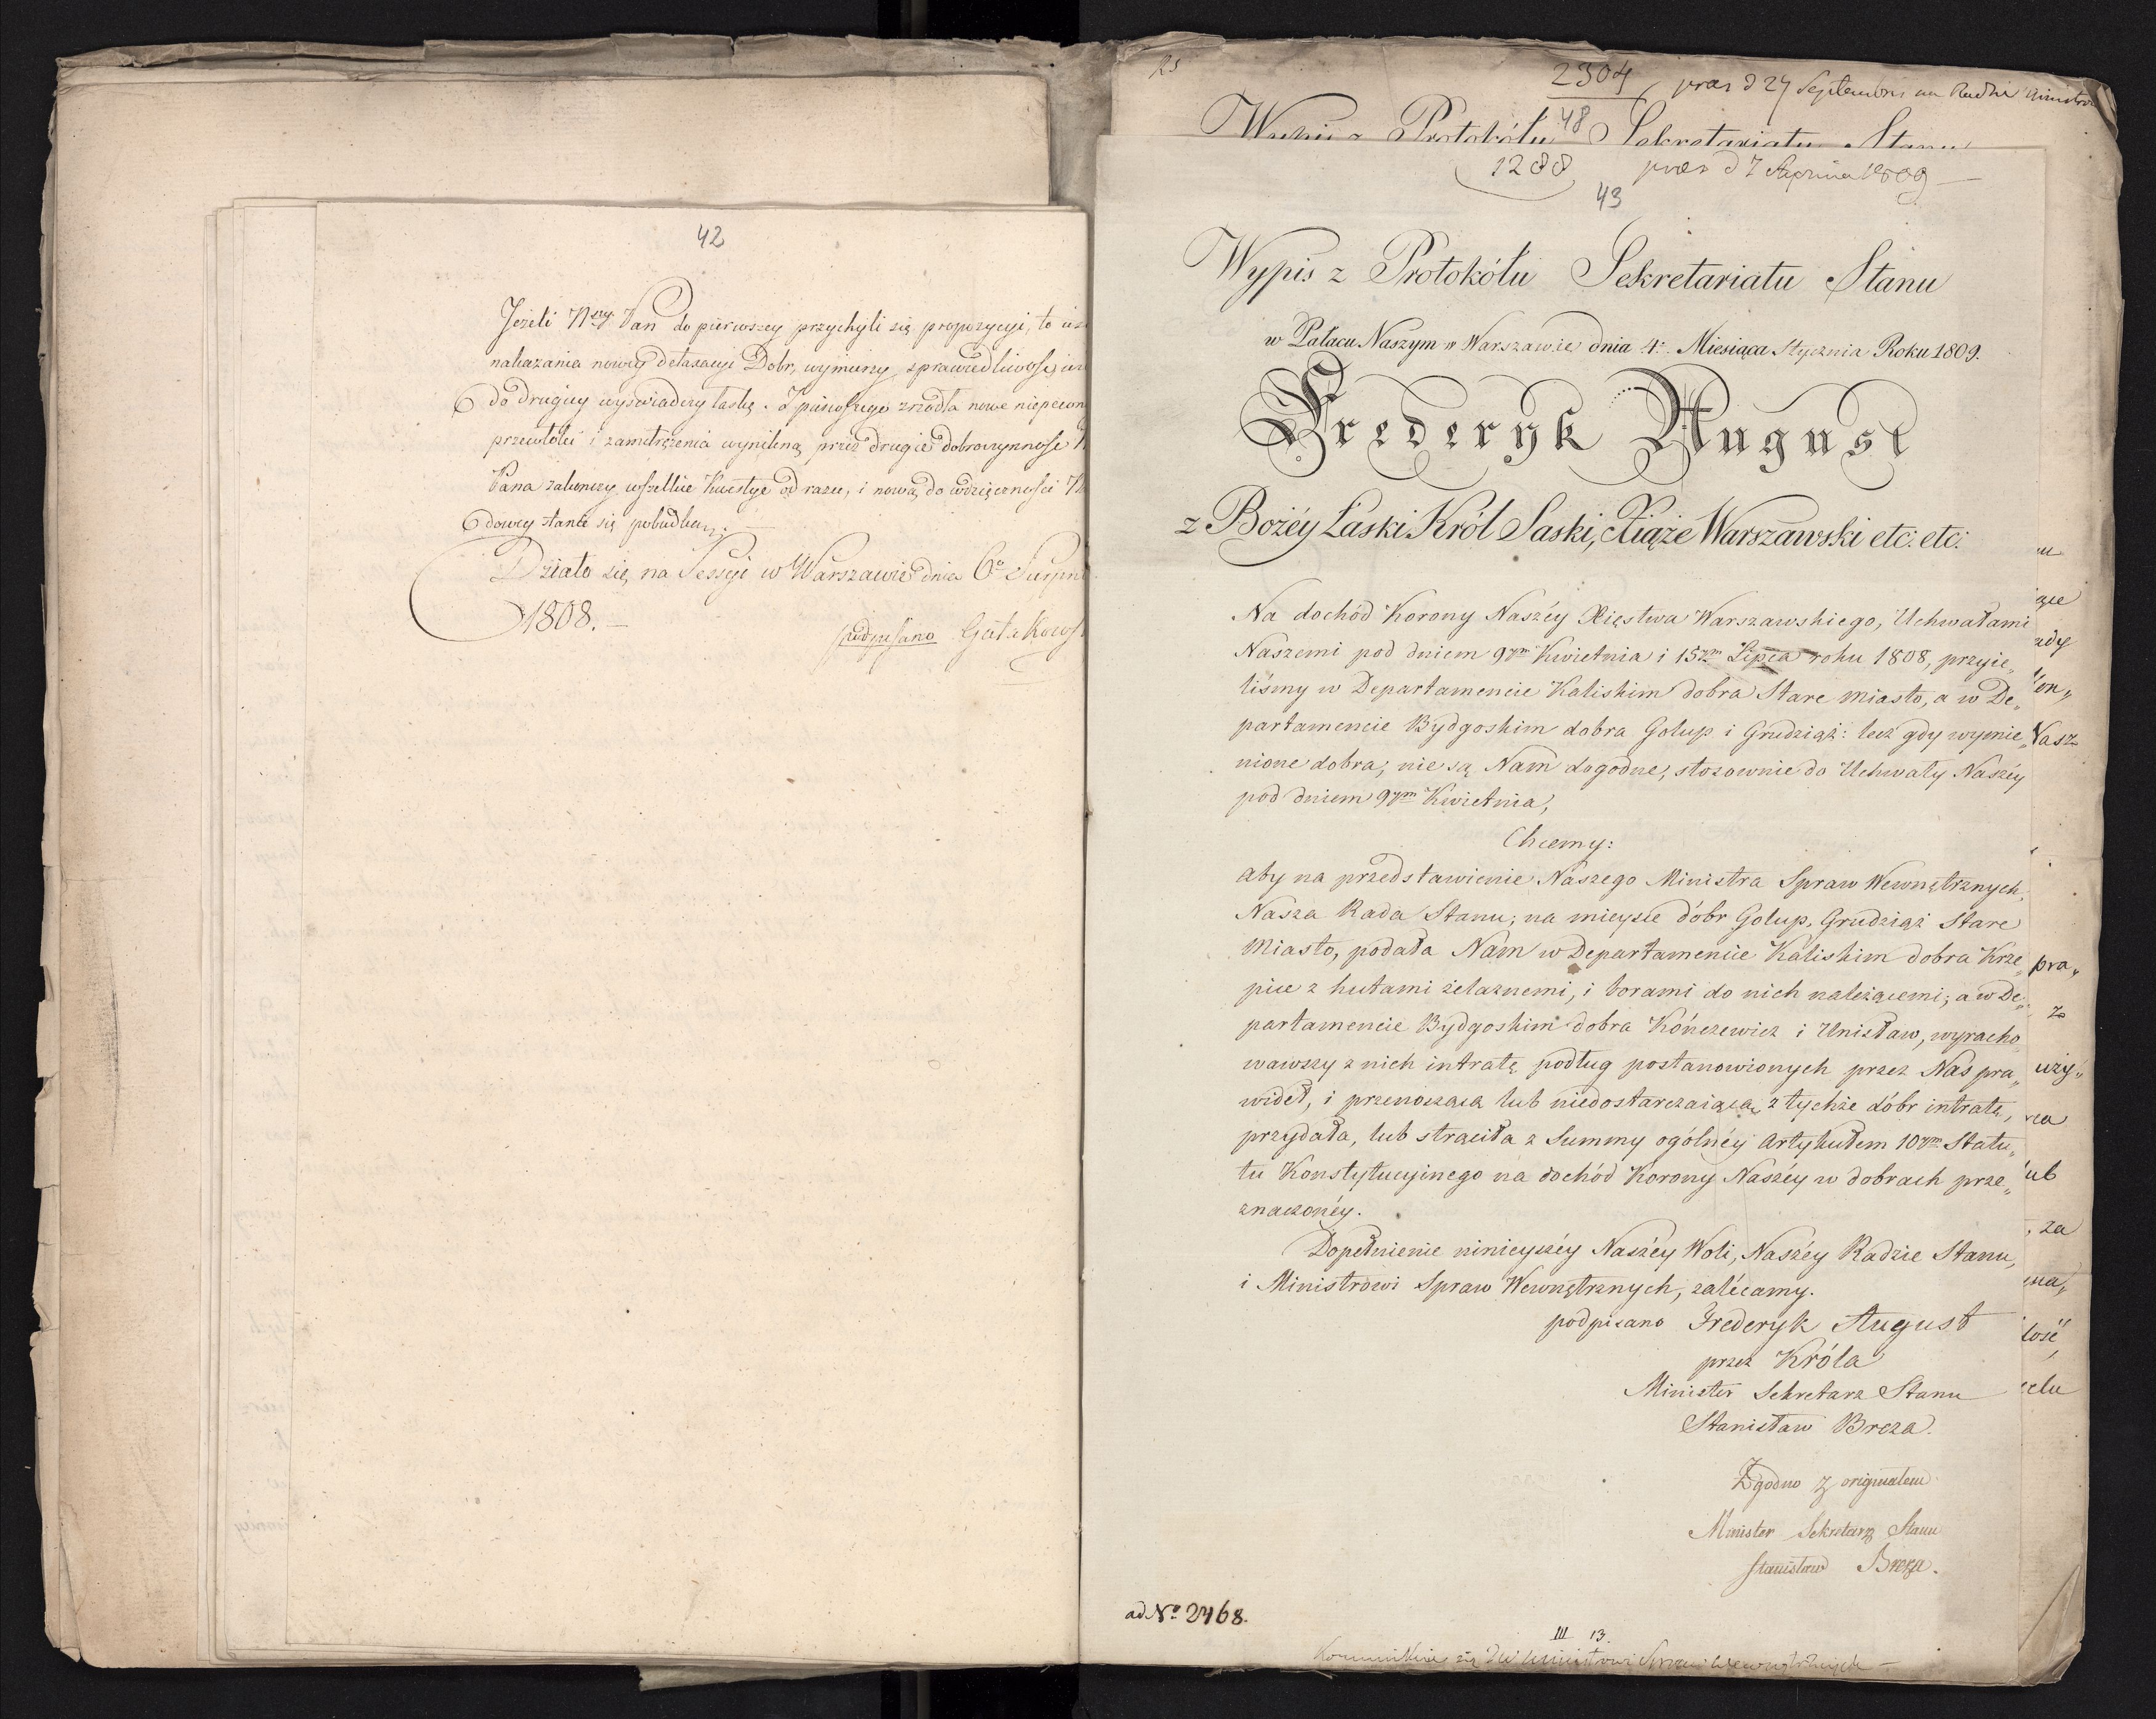 42
Jeżeli Nszy Pan do pierwszey przychyli się propozycyi, to
nakazania nowey detaxacyi Dobr, wymierzy sprawiedliwość,
do drugiey wyświadczy łaskę. Z pierwszego zrzodła nowe
przewłoki i zamitrężenia wynikną, przez drugie dobroczynność
Pana zakończy wszelkie kwestye od razu, i nową do wdzięczności
dowey stanie się pobudką.
Działo się na Sessyi w Warszawie dnia 6o
1808.
podpisano
2304
pras d 27 Septembris
48
Wypis z Protokółu Sekretariatu Stanu
1288
pras d 7 Aprilis 1809
43
Wypis z Protokółu Sekretariatu Stanu
w Pałacu Naszym w Warszawie dnia 4: Miesiąca Stycznia Roku 1809.
Frederyk August
z Bożéy Łaski Król Saski, Xiąże Warszawski etc: etc:
Na dochód Korony Naszéy Xięstwa Warszawskiego, Uchwałami
Naszemi pod dniem 9ym Kwietnia i 15ym Lipca roku 1808, przyie„
liśmy w Departamencie Kaliskim dobra Stare miasto, a w De„
partamencie Bydgoskim dobra Golup i Grudziąż: lecz gdy wymie„
nione dobra, nie są Nam dogodne, stosownie do Uchwały Naszéy
pod dniem 9ym Kwietnia,
Chcemy:
aby na przedstawienie Naszego Ministra Spraw Wewnętrznych,
Nasza Rada Stanu, na mieysce dóbr Golup, Grudziąż Stare
Miasto, podała Nam w Departamencie Kaliskim dobra Krze„
pice z hutami żelaznemi, i borami do nich należącemi; a w De„
partamencie Bydgoskim dobra Kończewicz i Unisław, wyracho„
wawszy z nich intratę podług postanowionych przez Nas pra„
wideł, i przenoszącą lub niedostarczaiącą z tychże dóbr intratę,
przydała, lub strąciła z Summy ogólnéy Artykułem 10ym Statu„
tu Konstytucyinego na dochód Korony Naszéy w dobrach prze„
znaczonéy.
Dopełnienie ninieyszéy Naszéy Woli, Naszéy Radzie Stanu,
i Ministrowi Spraw Wewnętrznych, zalécamy.
podpisano Frederyk August
przez Króla
Minister Sekretarz Stanu
Stanisław Breza.
Zgodno z originałem
Minister Sekretarz Stanu
Stanisław Breza.
ad No 2468.
III 13.
się Ministrowi Spraw Wewnętrznych